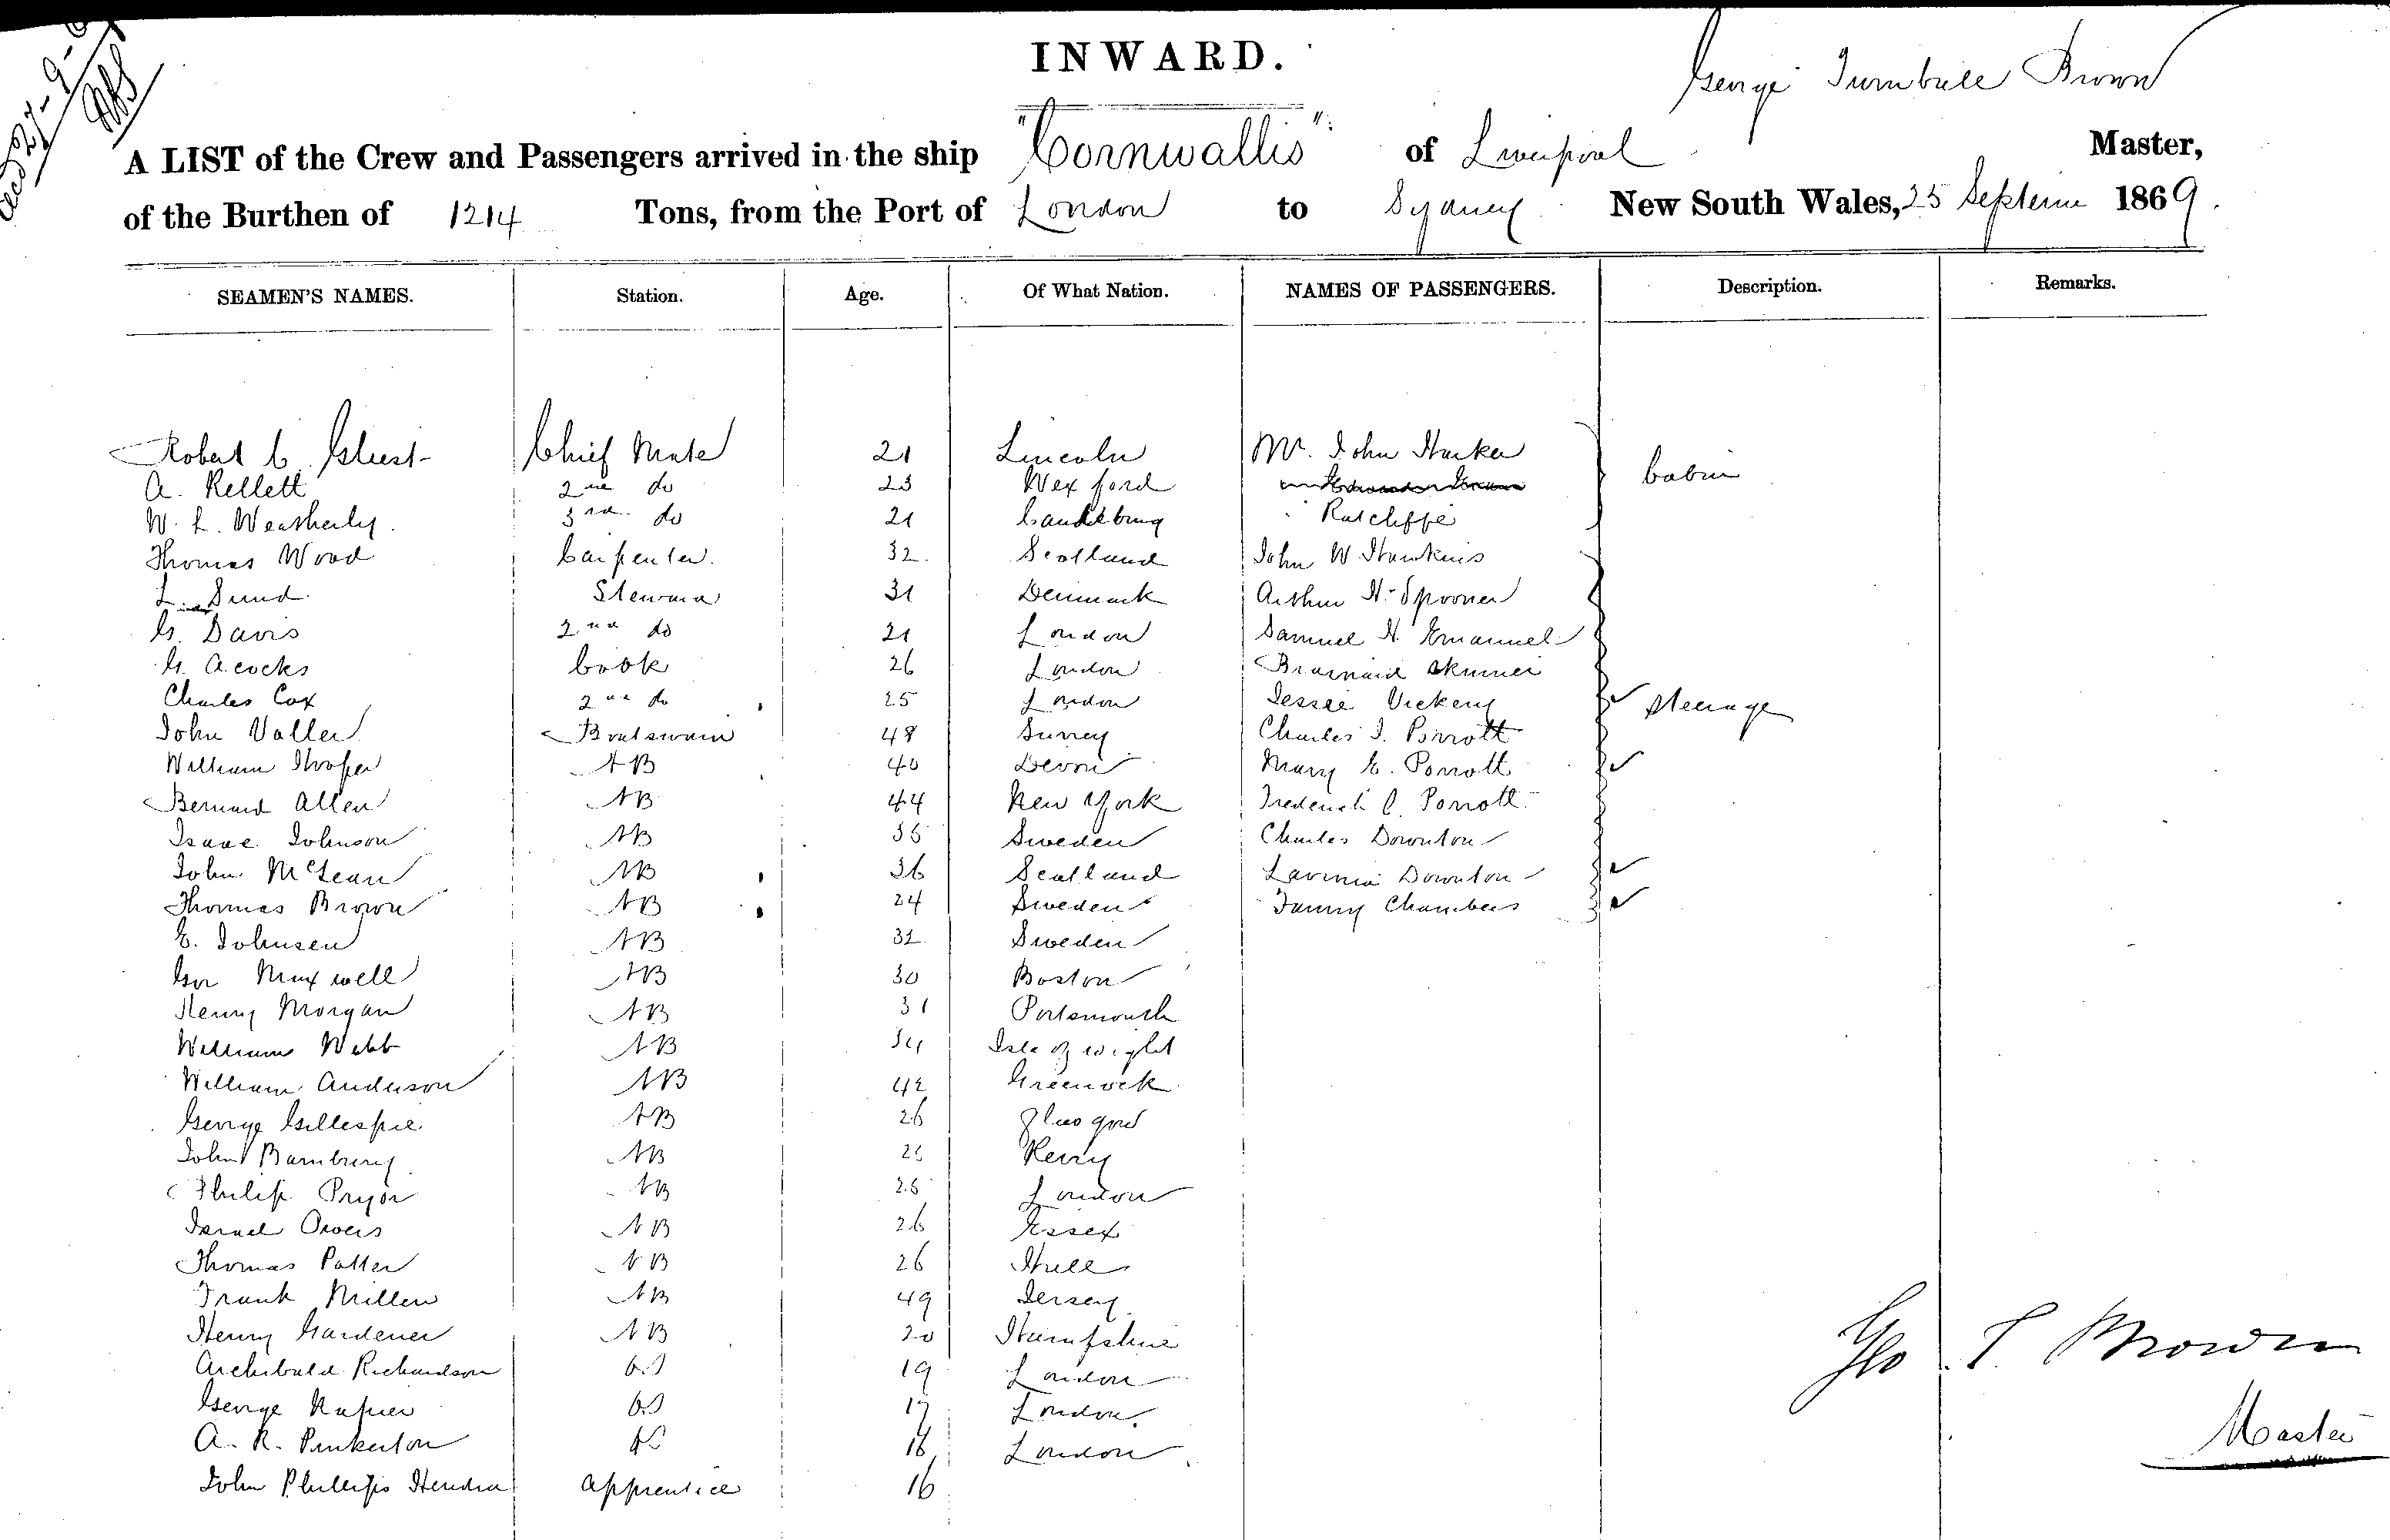 INWARD.
George Turnbull Brown
A LIST of the Crew and Passengers arrived in the ship "Cornwallis" of Liverpool Master,
of the Burthen of 1214 Tons, from the Port of London to Sydney New South Wales, 25 Septem 1869.
SEAMEN'S NAMES. Station. Age. Of What Nation. NAMES OF PASSENGERS. Description. Remarks.
Robert C. Chief Mate 21 Lincoln Mr. John Harker Cabin
A. Kellett 2nd do 23 Wexford
W. L. Weatherly 3rd do 21 Ratcliffe
Thomas Wood Carpenter 32 Scotland John W Hawkins
L. Sund Steward 31 Denmark Arthur H. Spooner
G. Davis 2nd do 21 London Samuel H. Emanuel
G. Acocks Cook 26 London Skinner
Charles Cox 2nd do 25 London Jessie Vickery Steerage
John Valler Boatswain 48 Surrey Charles J. Porrott
William Hooper AB 40 Devon Mary E. Porrott
Bernard Allen AB 44 New York Frederick C. Porrott
Isaac Johnson AB 35 Sweden Charles Downton
John McLean AB 36 Scotland Lavinia Downton
Thomas Brown AB 24 Sweden Fanny Chambers
E. Johnsen AB 32 Sweden
Geo Maxwell AB 30 Boston
Henry Morgan AB 31 Portsmouth
William Webb AB 34 Isle of wight
William Anderson AB 42 Greenock
George Gillespie AB 26 Glasgow
John Bambury AB Kerry
Philip Pryor AB 25 London
Israel Owers AB 26 Essex
Thomas Potter AB 26 Hull
Frank Millen AB 49 Jersey
Henry Gardener AB 20 Hampshire
Archibald Richardson OS 19 London
George Napier OS 17 London
A. R. Pinkerton OS 18 London
John Phillips Hendra Apprentice 16
Geo T. Brown
Master